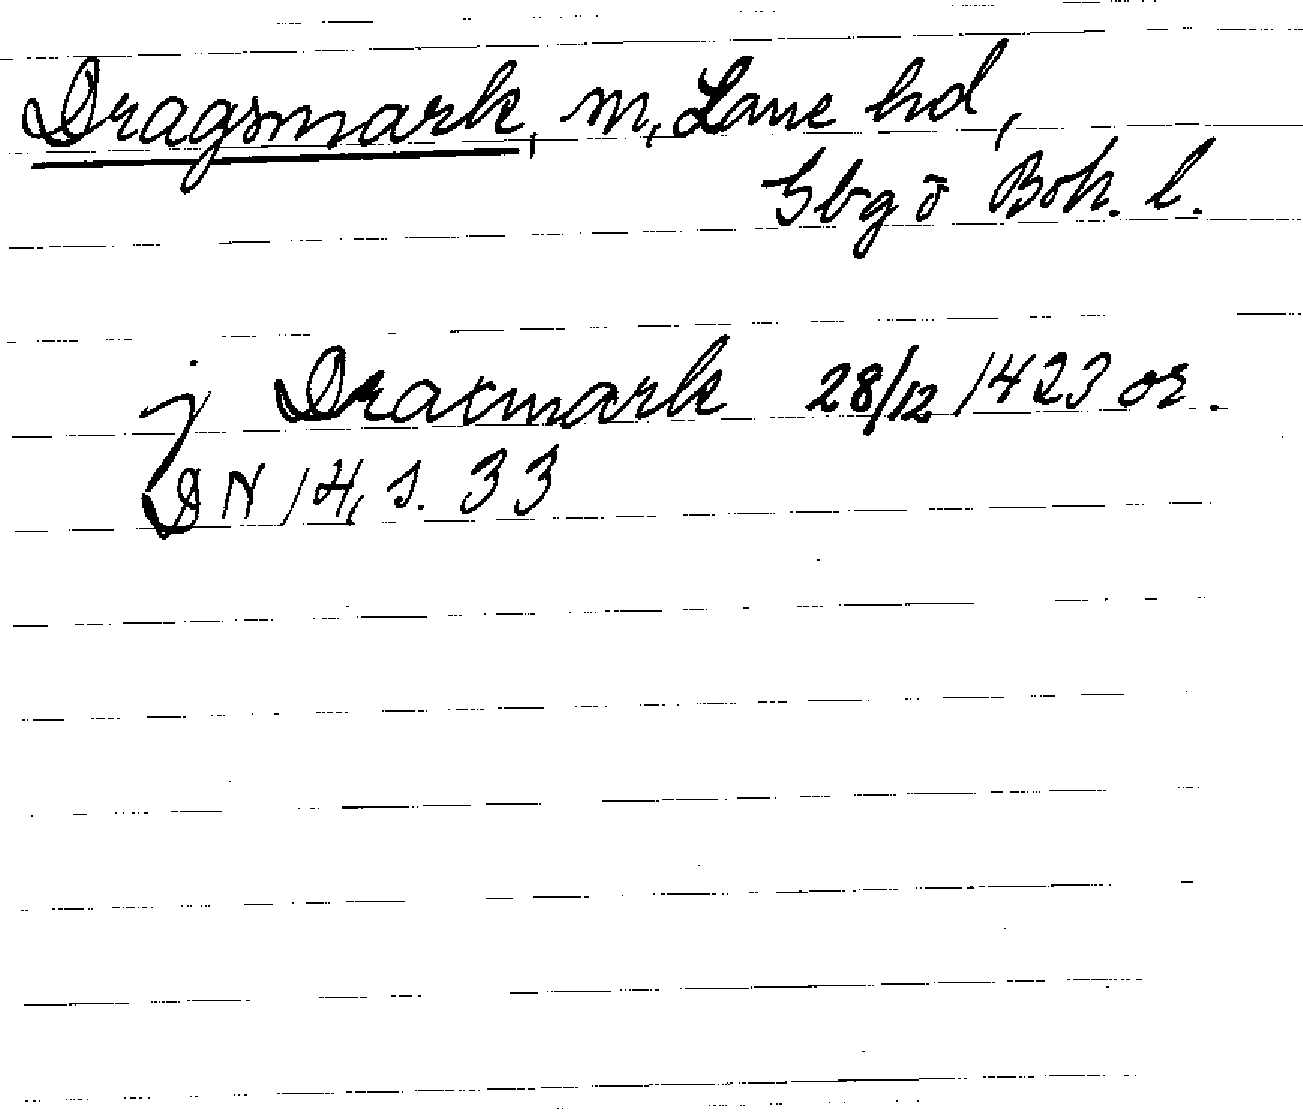 Dragsmark, m, Lane hd,
Gbg o Boh. l.
j Draxmark 28/12 1423 or.
DN 14, s. 33